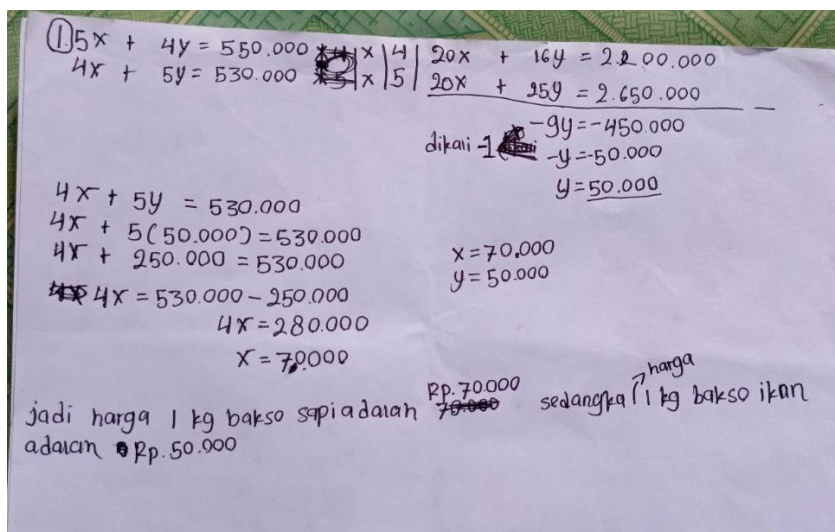 ① 5x + 4y = 550.000 |x|4| 20x + 16y = 2.200.000
4x + 5y = 530.000 |x|5| 20x + 25y = 2.650.000 —
-9y = -450.000
dikari -1 -y = -50.000
y = 50.000
4x + 5y = 530.000
4x + 5(50.000) = 530.000
4x + 250.000 = 530.000
4x = 530.000 - 250.000
4x = 280.000
x = 70.000
x = 70.000
y = 50.000
jadi harga 1 kg bakso sapi adalah Rp. 70.000 sedangka harga 1 kg bakso ikan
adalan Rp. 50.000